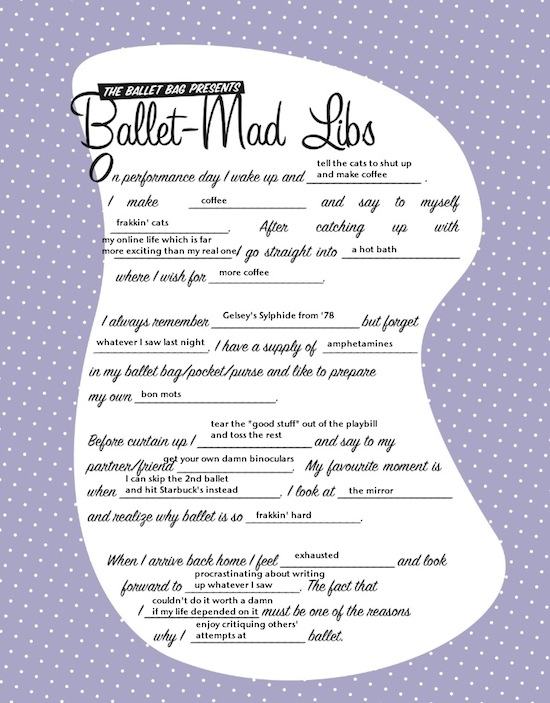 THE BALLET BAG PRESENTS
Ballet-Mad Libs
On performance day I wake up and tell the cats to shut up
and make coffee.
I make coffee and say to myself
frakkin' cats. After catching up with
my online life which is far
more exciting than my real one I go straight into a hot bath
where I wish for more coffee.
I always remember Gelsey's Sylphide from '78 but forget
whatever I saw last night. I have a supply of amphetamines
in my ballet bag/pocket/purse and like to prepare
my own bon mots.
Before curtain up I tear the "good stuff" out of the playbill
and toss the rest and say to my
partner/friend get your own damn binoculars. My favourite moment is
when I can skip the 2nd ballet
and hit Starbuck's instead. I look at the mirror
and realize why ballet is so frakkin' hard.
When I arrive back home I feel exhausted and look
forward to procrastinating about writing
up whatever I saw. The fact that
I couldn't do it worth a damn
if my life depended on it must be one of the reasons
why I enjoy critiquing others'
attempts at ballet.